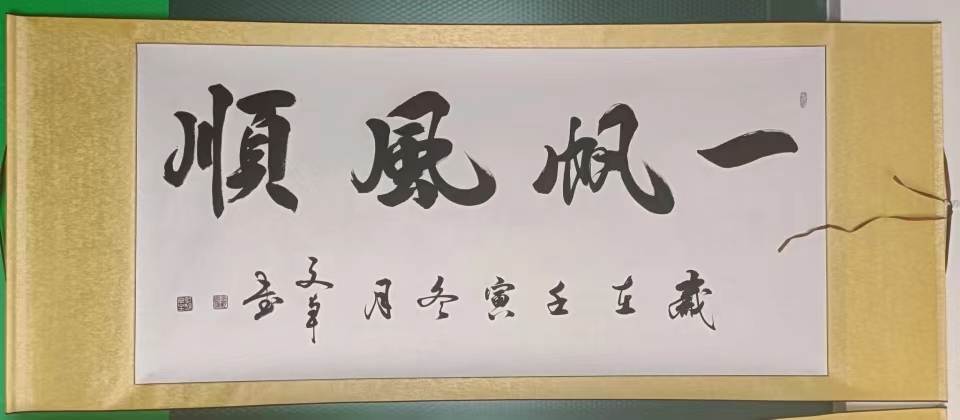 一帆風順
歲在壬寅冬月文卓書